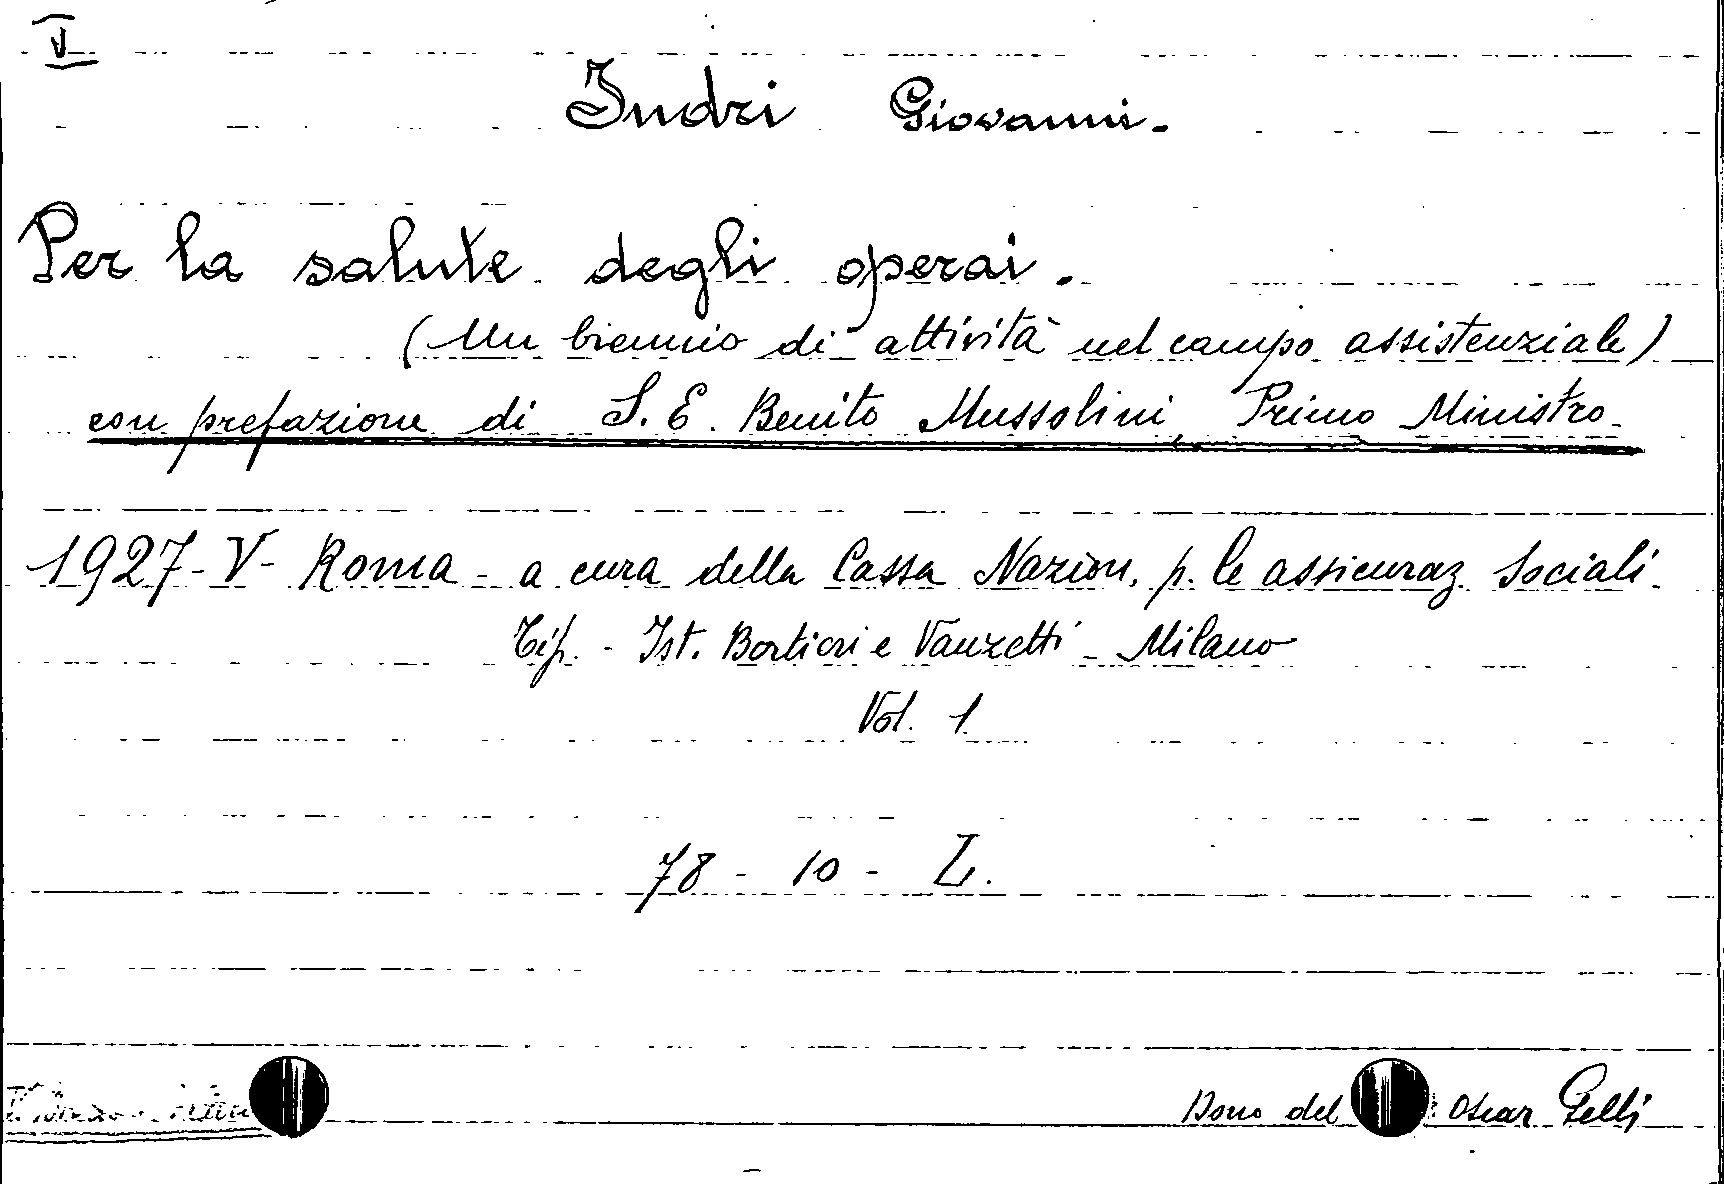 V
Indri Giovanni.
Per la salute degli operai.
(Un biennio di attività nel campo assistenziale)
con prefazione di S. E. Benito Mussolini, Primo Ministro.
1927 - V - Roma - a cura della Cassa Nazion. p. le assicuraz. Sociali.
Tip. - Ist. Bortieri e Vanzetti - Milano
Vol. 1
78 - 10 - L.
Dono del Oscar Gelli